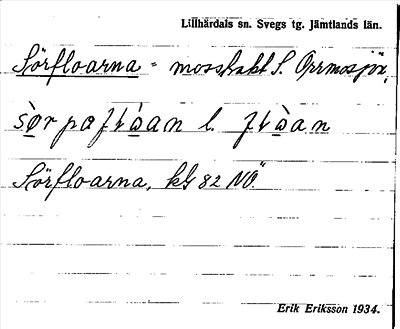 Lillhärdals sn. Svegs tg. Jämtlands län.
Sörfloarna = mosstrakt S. Orrmosjön,
sòr pa flàan l. flàan
Sörfloarna, kbl 82 NO.
Erik Eriksson 1934.